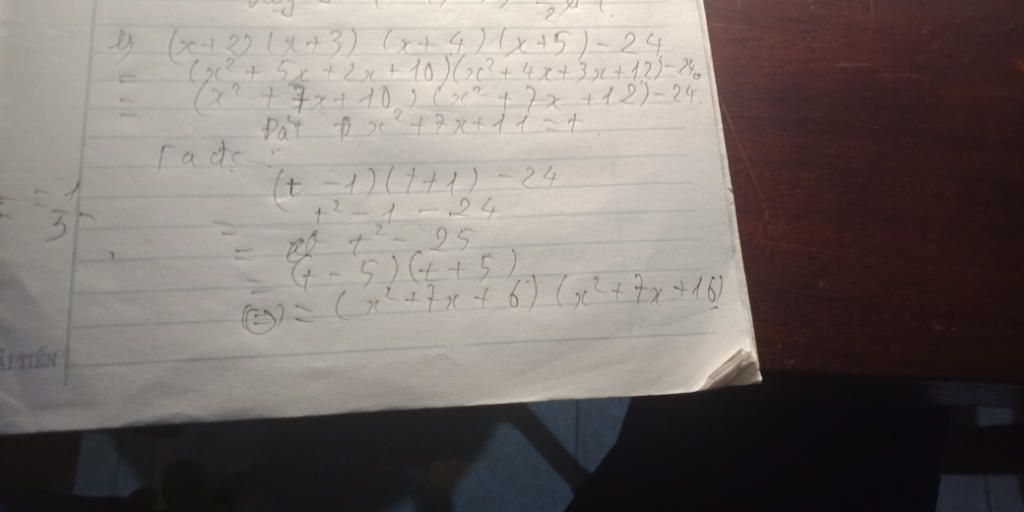 (x+2)(x+3)(x+4)(x+5)-24
= (x²+5x+2x+10)(x²+4x+3x+12)-24
= (x²+7x+10)(x²+7x+12)-24.
Đặt x²+7x+11=t
Ta đc:
(t-1)(t+1)-24
= t²-1-24
= t²-25
= (t-5)(t+5)
(=>) = (x²+7x+6)(x²+7x+16)
= -1/3
ẢI TIẾN